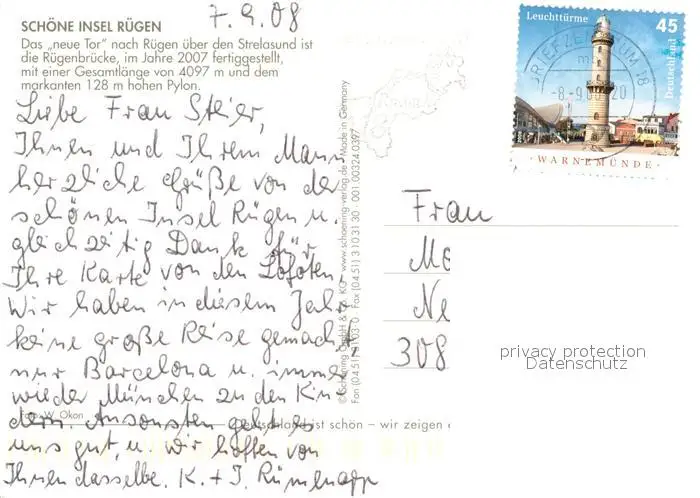 7.9.08
SCHÖNE INSEL RÜGEN
Das „neue Tor“ nach Rügen über den Strelasund ist
die Rügenbrücke, im Jahre 2007 fertiggestellt,
mit einer Gesamtlänge von 4097 m und dem
markanten 128 m hohen Pylon.
Liebe Frau Steier,
Ihnen und Ihrem Mann
herzliche Grüße von der
schönen Insel Rügen u.
gleichzeitig Dank für
Ihre Karte von den Lofoten.
Wir haben in diesem Jahr
keine große Reise gemacht,
nur Barcelona u. immer
wieder München zu den Kin-
dern. Ansonsten geht es
uns gut, u. wir hoffen von
Ihnen dasselbe. K. + I.
Foto: W. Okon
Deutschland ist schön – wir zeigen
© Schöning GmbH & Co. KG • www.schoening-verlag.de • Made in Germany
Fax (04 51) 3 10 31 30 001 00324 0397
Leuchttürme 45
Deutschland
WARNEMÜNDE
BRIEFZENTRUM 18
Frau
Me
Ne
308
privacy protection
Datenschutz